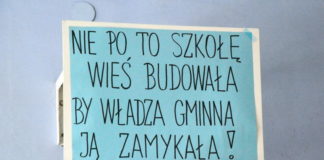 NIE PO TO SZKOŁĘ
WIEŚ BUDOWAŁA
BY WŁADZA GMINNA
JĄ ZAMYKAŁA!